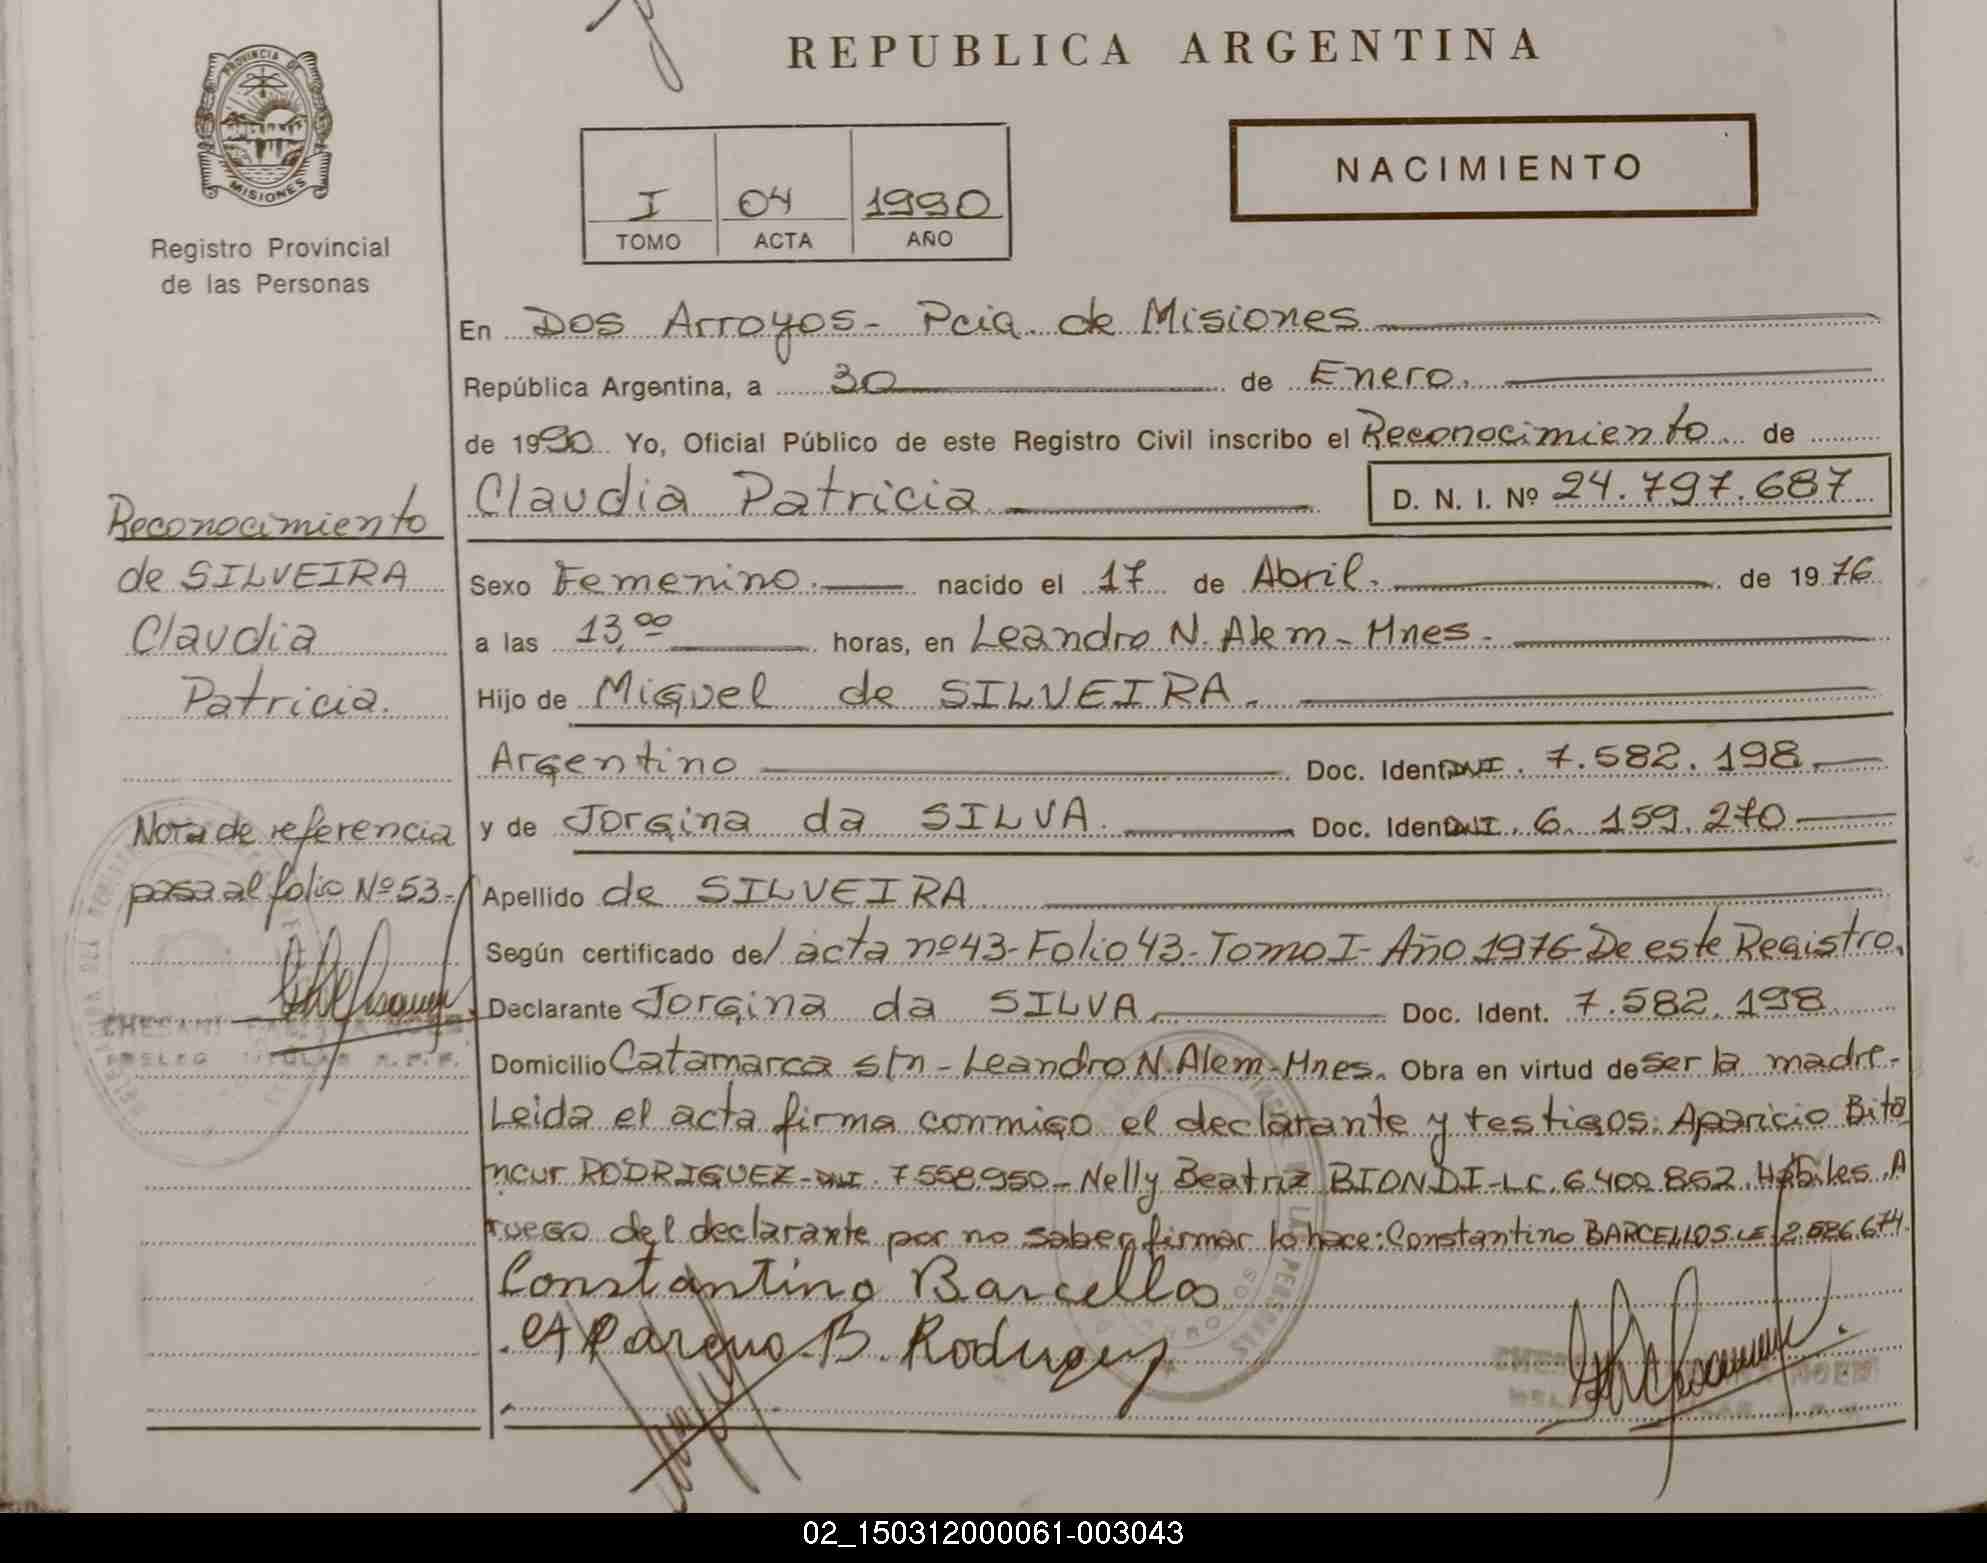 REPUBLICA ARGENTINA
PROVINCIA DE
MISIONES
Registro Provincial
de las Personas
I 04 1990
TOMO ACTA AÑO
NACIMIENTO
En Dos Arroyos- Pcia. de Misiones
República Argentina, a 30 de Enero.
de 1990 Yo, Oficial Público de este Registro Civil inscribo el Reconocimiento de
Claudia Patricia D. N. I. Nº 24.797.687
Reconocimiento
de SILVEIRA
Claudia
Patricia.
Nota de referencia
pasa al folio Nº 53-
Sexo Femenino. nacido el 17 de Abril. de 1976
a las 13,00 horas, en Leandro N. Alem- Mnes-
Hijo de Miguel de SILVEIRA.
Argentino Doc. Ident. DNI. 7.582.198.
y de Jorgina da SILVA. Doc. Ident. DNI. 6.159.270
Apellido de SILVEIRA
Según certificado del acta nº 43-Folio 43-Tomo I-Año 1976-De este Registro.
Declarante Jorgina da SILVA Doc. Ident. 7.582.198
Domicilio Catamarca s/n - Leandro N. Alem-Mnes. Obra en virtud de ser la madre-
Leida el acta firma conmigo el declarante y testigos: Aparicio Bita
ncur RODRIGUEZ-DNI. 7.558.950- Nelly Beatriz BIONDI-LC. 6.400.852. Hábiles. A
ruego del declarante por no saber firmar lo hace: Constantino BARCELLOS LE 2.586.674.
Constantino Barcellos
B. Rodriguez
02_150312000061-003043